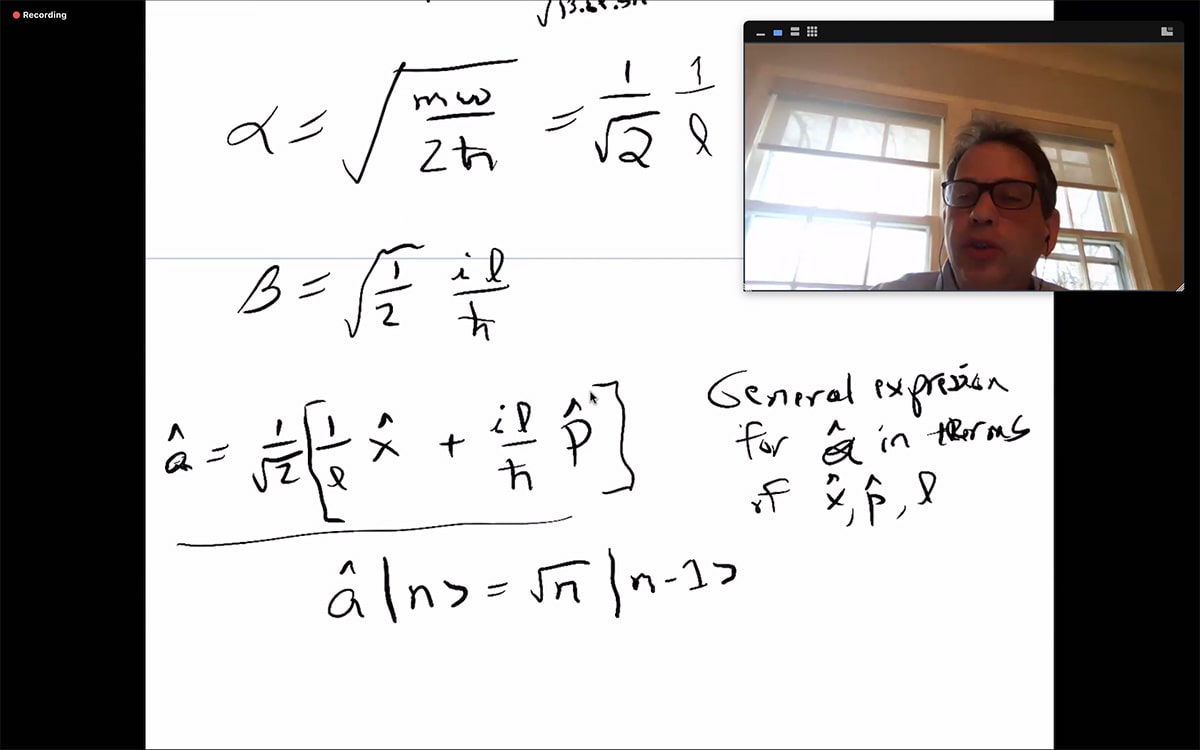 Recording
α = √(mω/2ħ) = 1/√2 1/l
β = √(1/2) il/ħ
â = 1/√2 [1/l x̂ + il/ħ p̂]
General expression
for â in terms
of x̂, p̂, l
â|n> = √n |n-1>